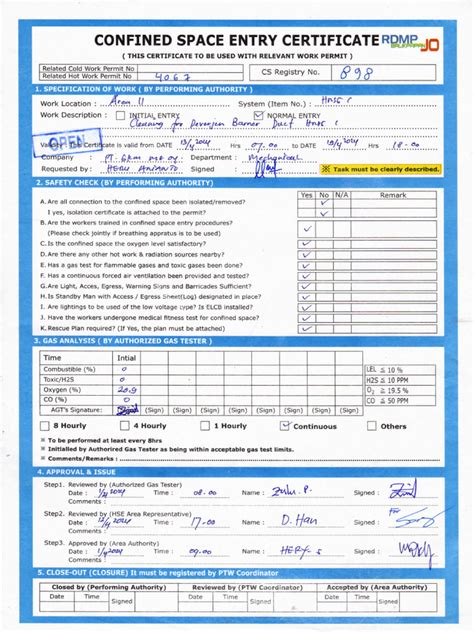 CONFINED SPACE ENTRY CERTIFICATE RDMP BALIKPAPAN JO
( THIS CERTIFICATE TO BE USED WITH RELEVANT WORK PERMIT )
Related Cold Work Permit No
Related Hot Work Permit No 4067 CS Registry No. 898
1. SPECIFICATION OF WORK ( BY PERFORMING AUTHORITY )
Work Location : Area 11 System (Item No.) :
Work Description : INITIAL ENTRY NORMAL ENTRY
Cleaning for Duct
OPEN
Validity : This Certificate is valid from Hrs 07.00 to Hrs 18.00
Company : Department : Mechanical
Requested By : Signed ※ Task must be clearly described.
2. SAFETY CHECK (BY PERFORMING AUTHORITY)
Yes No N/A Remark
A. Are all connection to the confined space been isolated/removed?
I yes, isolation certificate is attached to the permit?
B. Are the workers trained in confined space entry procedures?
(Please check jointly if breathing appratus is to be used)
C. Is the confined space the oxygen level satisfactory?
D. Are there any other hot work & radiation sources nearby?
E. Has a gas test for flammable gases and toxic gases been done?
F. Has a continuous forced air ventilation been provided and tested?
G. Are Light, Acces, Egress, Warning Signs and Barricades Sufficient?
H. Is Standby Man with Access / Egress Sheet(Log) designated in place?
I. Are lightings to be used of the low voltage type? Is ELCB installed?
J. Have the workers undergone medical fitness test for confined space?
K. Rescue Plan required? (If Yes, the plan must be attached)
3. GAS ANALYSIS ( BY AUTHORIZED GAS TESTER )
Time Intial
Combustible (%) 0 LEL ≦ 10 %
Toxic/H2S 0 H2S ≦ 10 PPM
Oxygen (%) 20.9 O₂ ≧ 19.5 %
CO (%) 0 CO ≦ 50 PPM
AGT's Signature: (Sign) (Sign) (Sign) (Sign) (Sign) (Sign)
8 Hourly 4 Hourly 1 Hourly Continuous Others
※ To be performed at least every 8hrs
※ Initialled by Authorized Gas Tester as being within acceptable test limits.
※ Comments/Remarks :
4. APPROVAL & ISSUE
Step1. Reviewed by (Authorized Gas Tester)
Date : Time : 08.00 Name : Signed :
Step2. Reviewed by (HSE Area Representative)
Date : Time : 17.00 Name : D. Han Signed : For
Step3. Approved by (Area Authority)
Date : Time : 09.00 Name : HERY S Signed :
5. CLOSE-OUT (CLOSURE) It must be registered by PTW Coordinator
Closed by (Performing Authority) Reviewed by (PTW Coordinator) Accepted by (Area Authority)
Date Time Signed Date Time Signed Date Time Signed